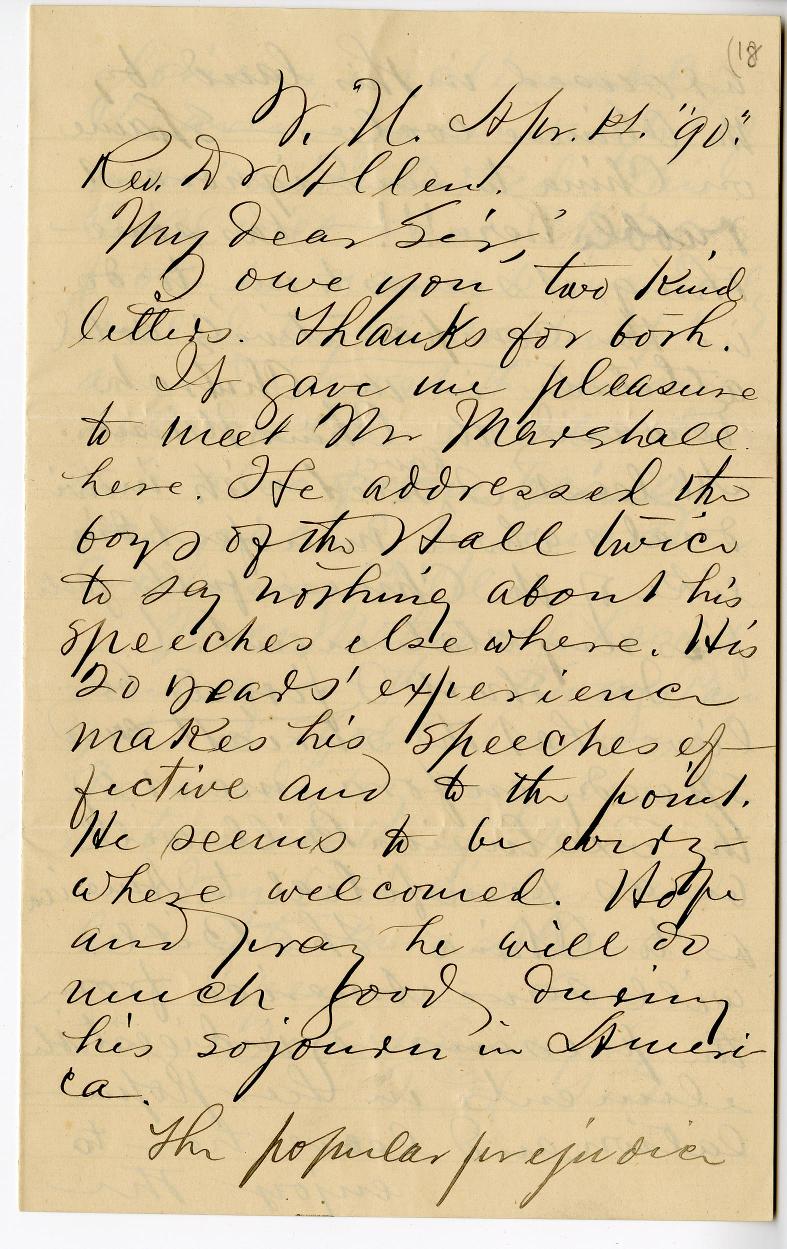 (18
V. U. Apr. 1st. "90."
Rev. Dr Allen.
My dear Sir,
I owe you two kind
letters. Thanks for both.
It gave me pleasure
to meet Mr Marshall
here. He addressed the
boys of the Hall twice
to say nothing about his
speeches elsewhere. His
20 years' experience
makes his speeches ef-
fective and to the point.
He seems to be every-
where welcomed. Hope
and pray he will do
much good during
his sojourn in Ameri-
ca.
The popular prejudice